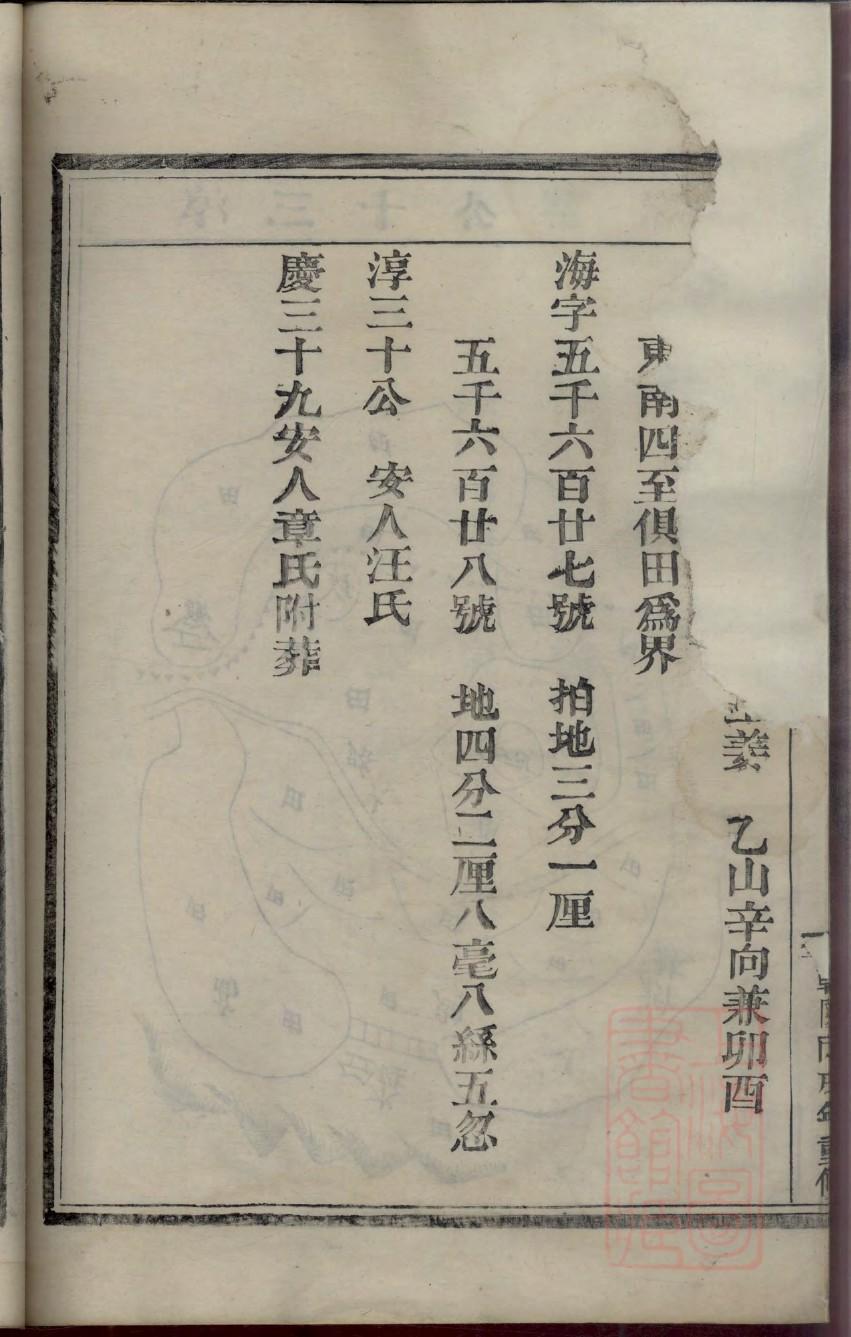 義 乙山辛向兼卯酉
東南四至俱田爲界
海字五千六百廿七號 拍地三分一厘
五千六百廿八號 地四分二厘八毫八絲五忽
淳三十公 安人汪氏
慶三十九安人章氏附葬